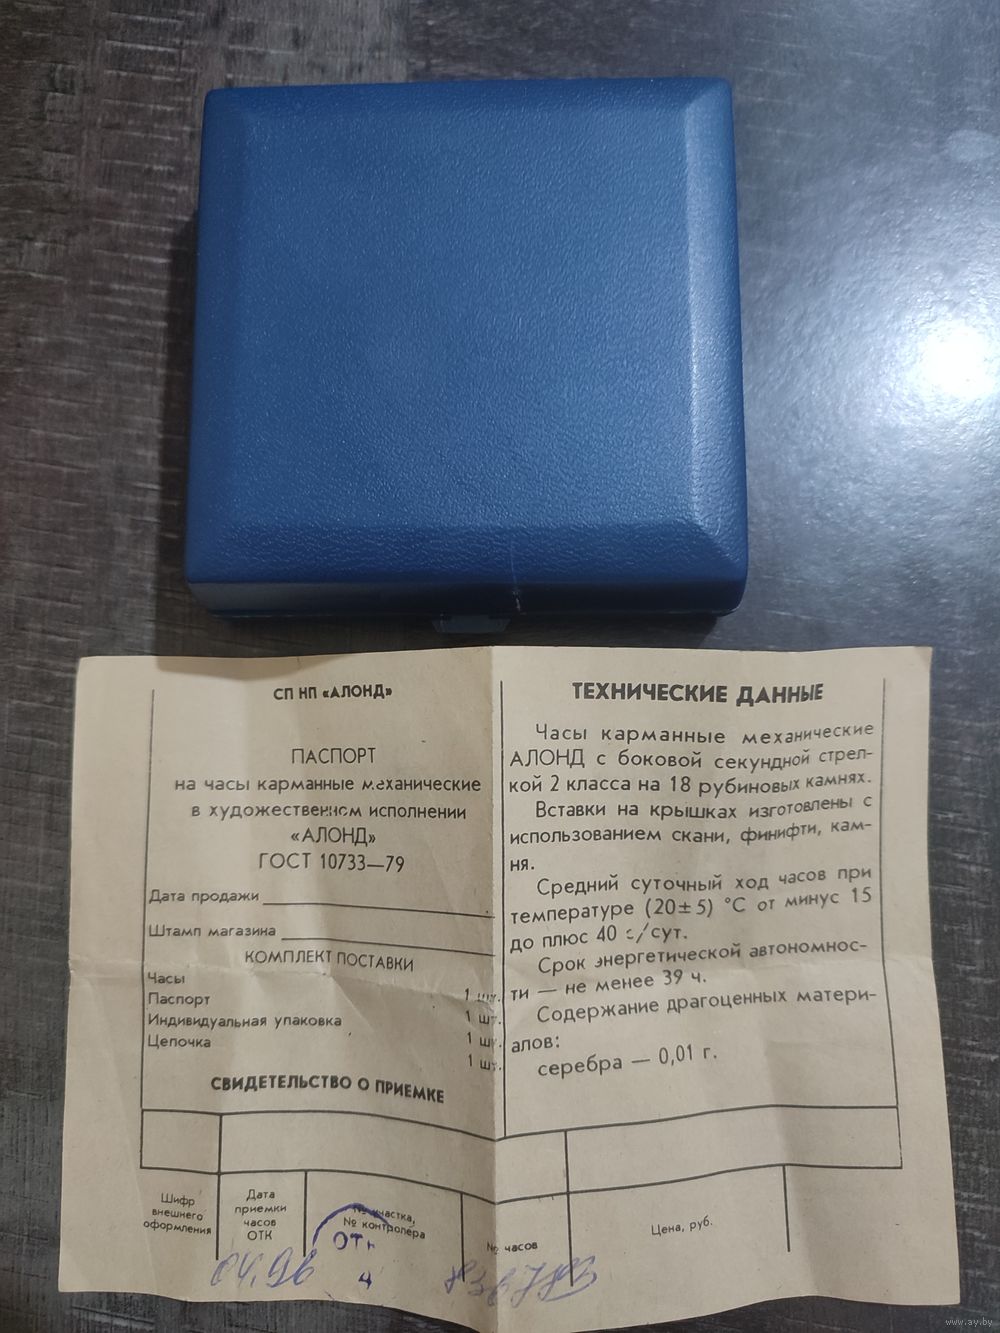 СП НП «АЛОНД»
ПАСПОРТ
на часы карманные механические
в художественном исполнении
«АЛОНД»
ГОСТ 10733—79
Дата продажи
Штамп магазина
КОМПЛЕКТ ПОСТАВКИ
Часы 1 шт.
Паспорт 1 шт.
Индивидуальная упаковка 1 шт.
Цепочка 1 шт.
СВИДЕТЕЛЬСТВО О ПРИЕМКЕ
ТЕХНИЧЕСКИЕ ДАННЫЕ
Часы карманные механические
АЛОНД с боковой секундной стрел-
кой 2 класса на 18 рубиновых камнях.
Вставки на крышках изготовлены с
использованием скани, финифти, кам-
ня.
Средний суточный ход часов при
температуре (20±5) °С от минус 15
до плюс 40 с/сут.
Срок энергетической автономнос-
ти — не менее 39 ч.
Содержание драгоценных матери-
алов:
серебра — 0,01 г.
Шифр
внешнего
оформления
Дата
приемки
часов
ОТК
№ участка,
№ контролёра
№ часов
Цена, руб.
ОТК
4
04.96
www.ay.by